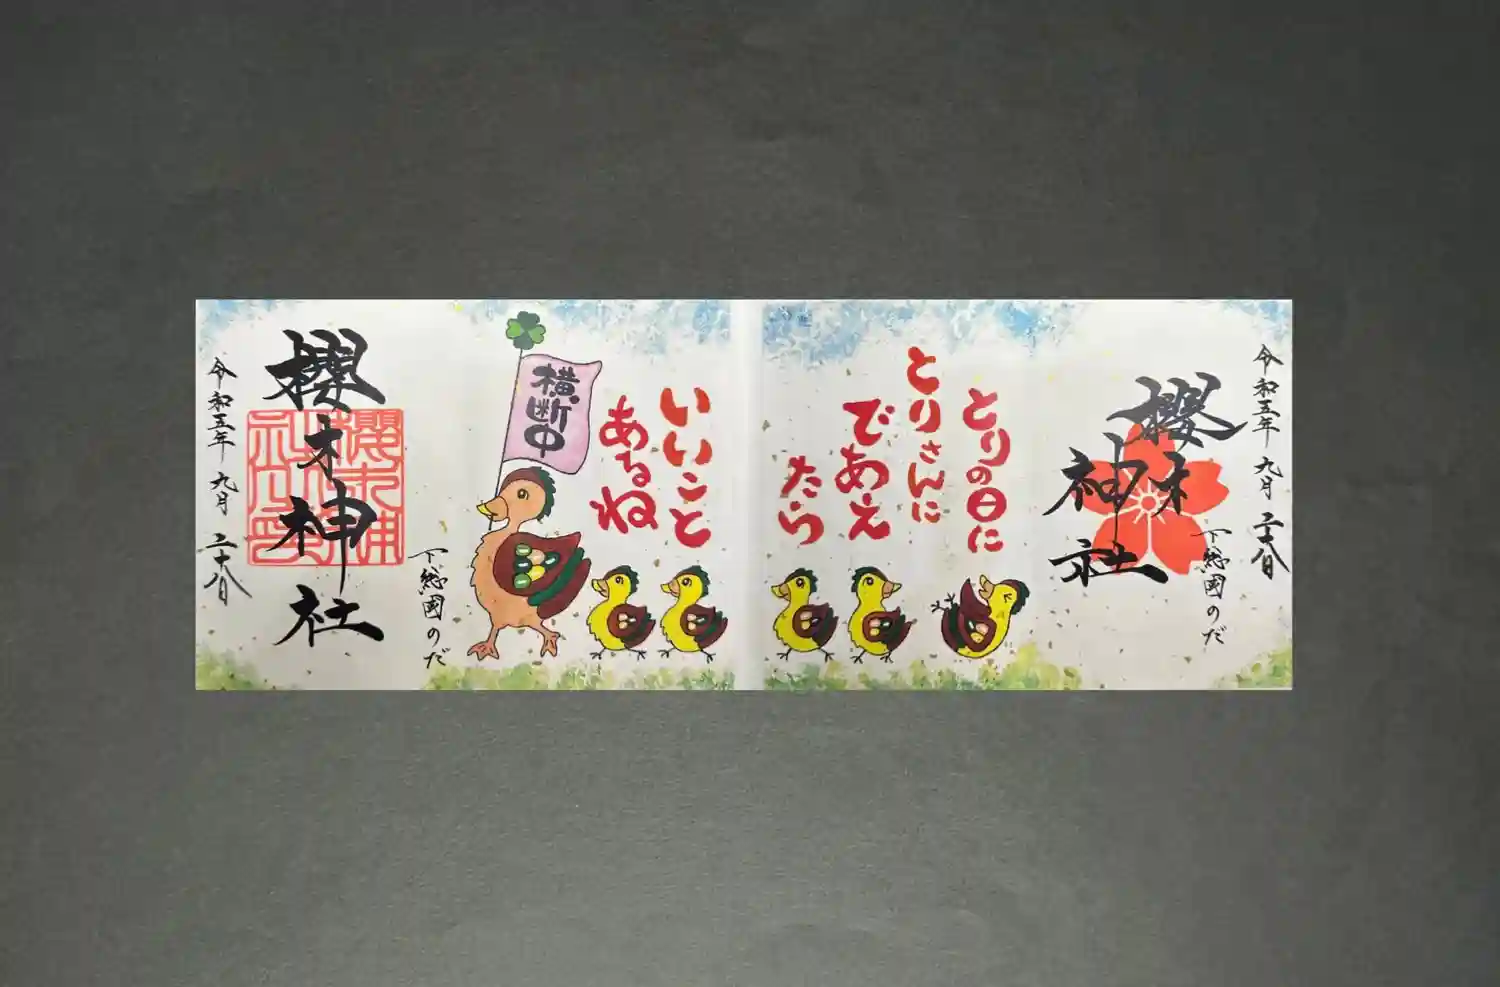 令和五年 九月 二十八日
櫻木神社
下総國のだ
とりの日に
とりさんに
であえ
たら
いいこと
あるね
横断中
下総國のだ
櫻木神社
令和五年 九月 二十八日